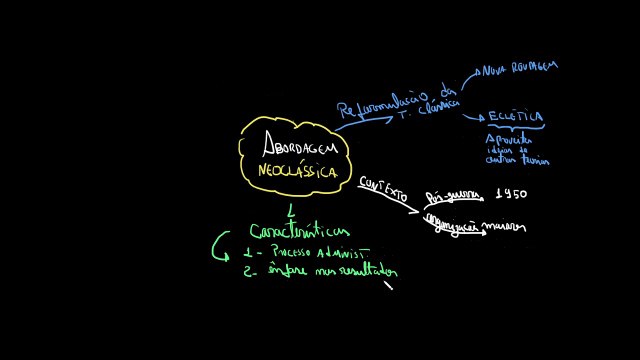 ABORDAGEM
NEOCLÁSSICA
Reformulação da
T. Clássica
NOVA ROUPAGEM
ECLÉTICA
Aproveita
ideias de
outras teorias
CONTEXTO
Pós-guerra 1950
organizações maiores
Características
1- PROCESSO ADMINIST.
2- ênfase nos resultados